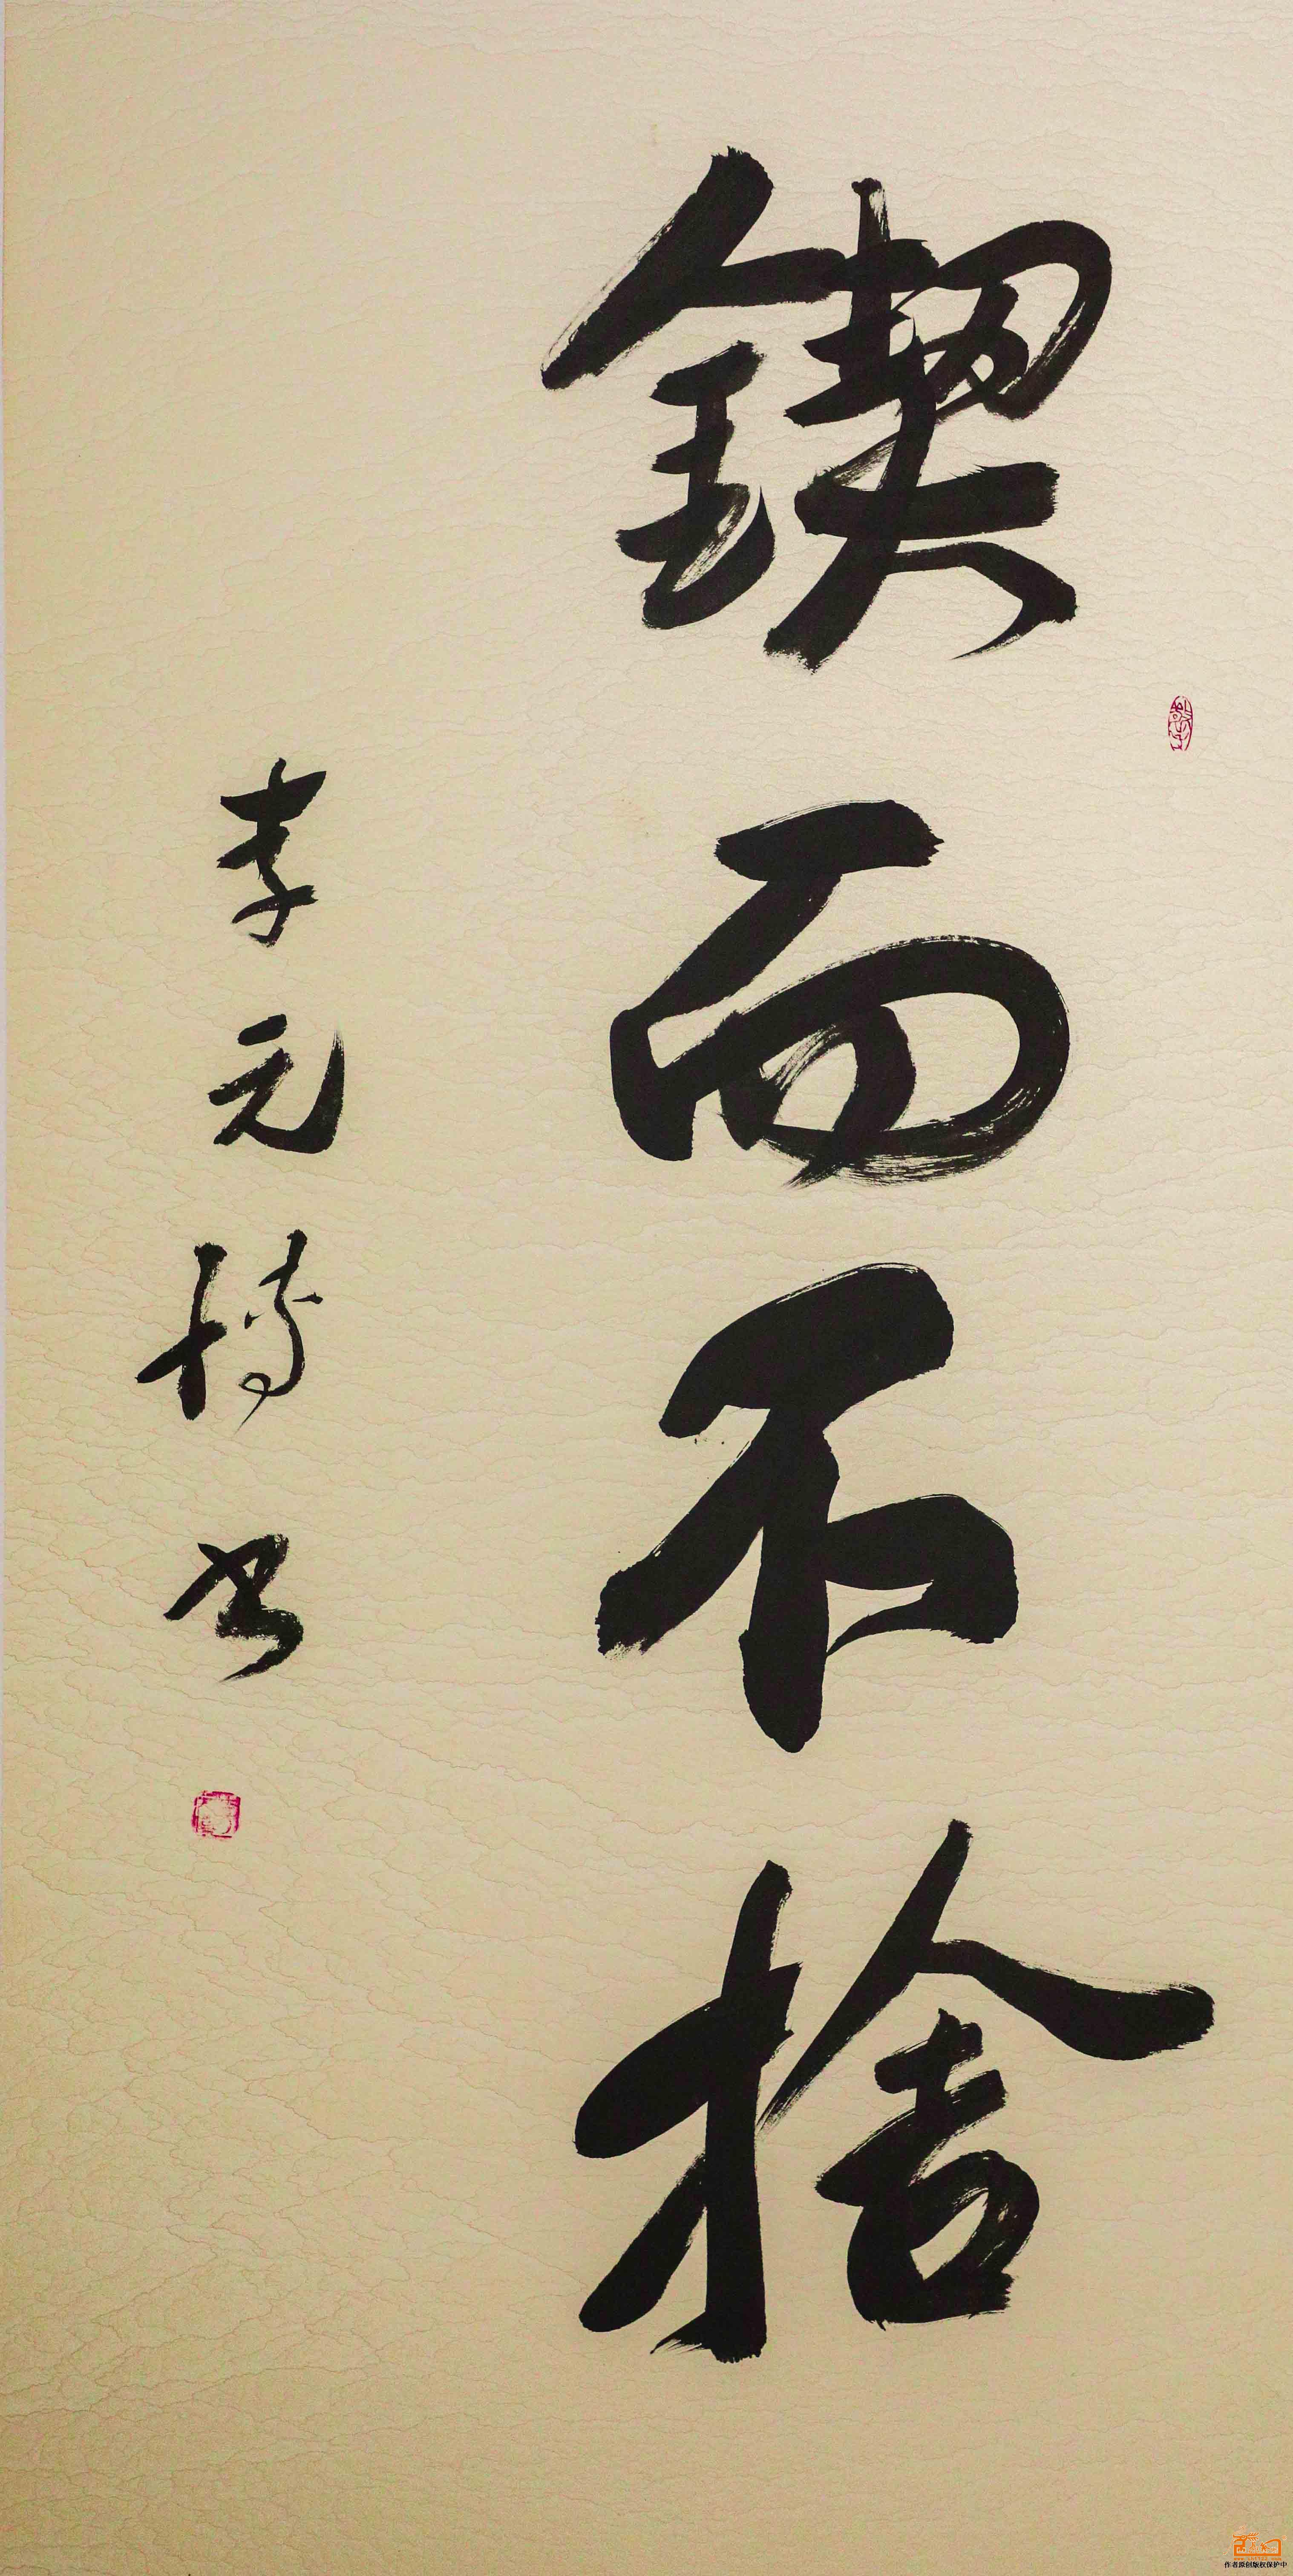 鍥而不捨
李元博书
作者原创版权保护中